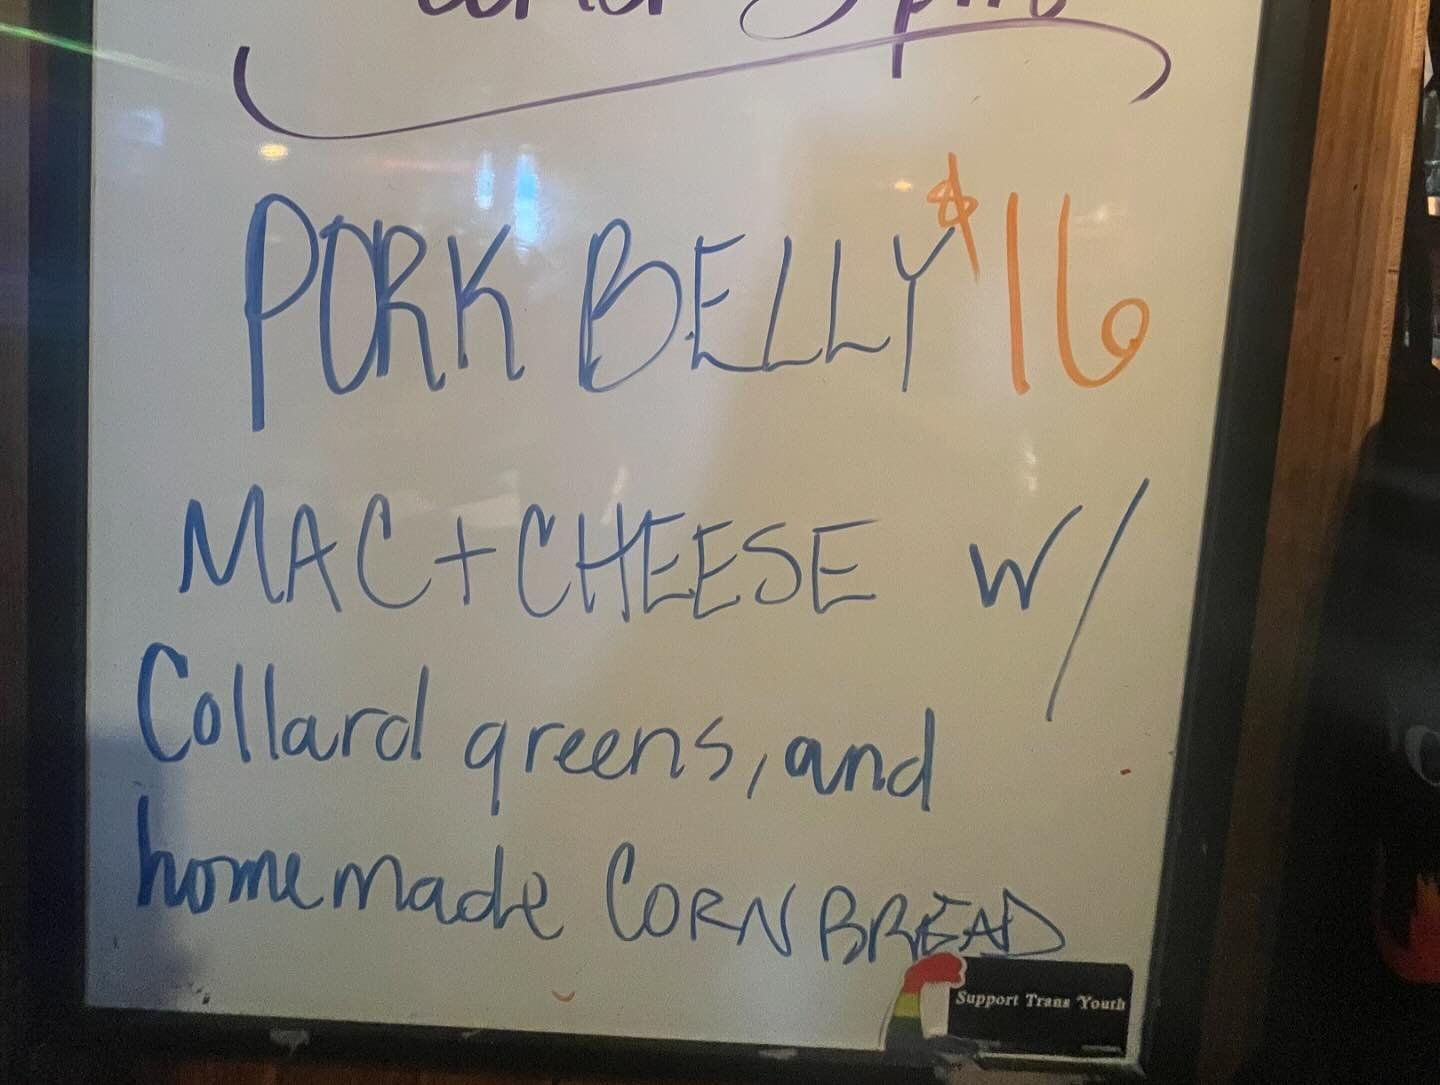 PORK BELLY $16
MAC + CHEESE w/
Collard greens, and
homemade CORN BREAD
Support Trans Youth